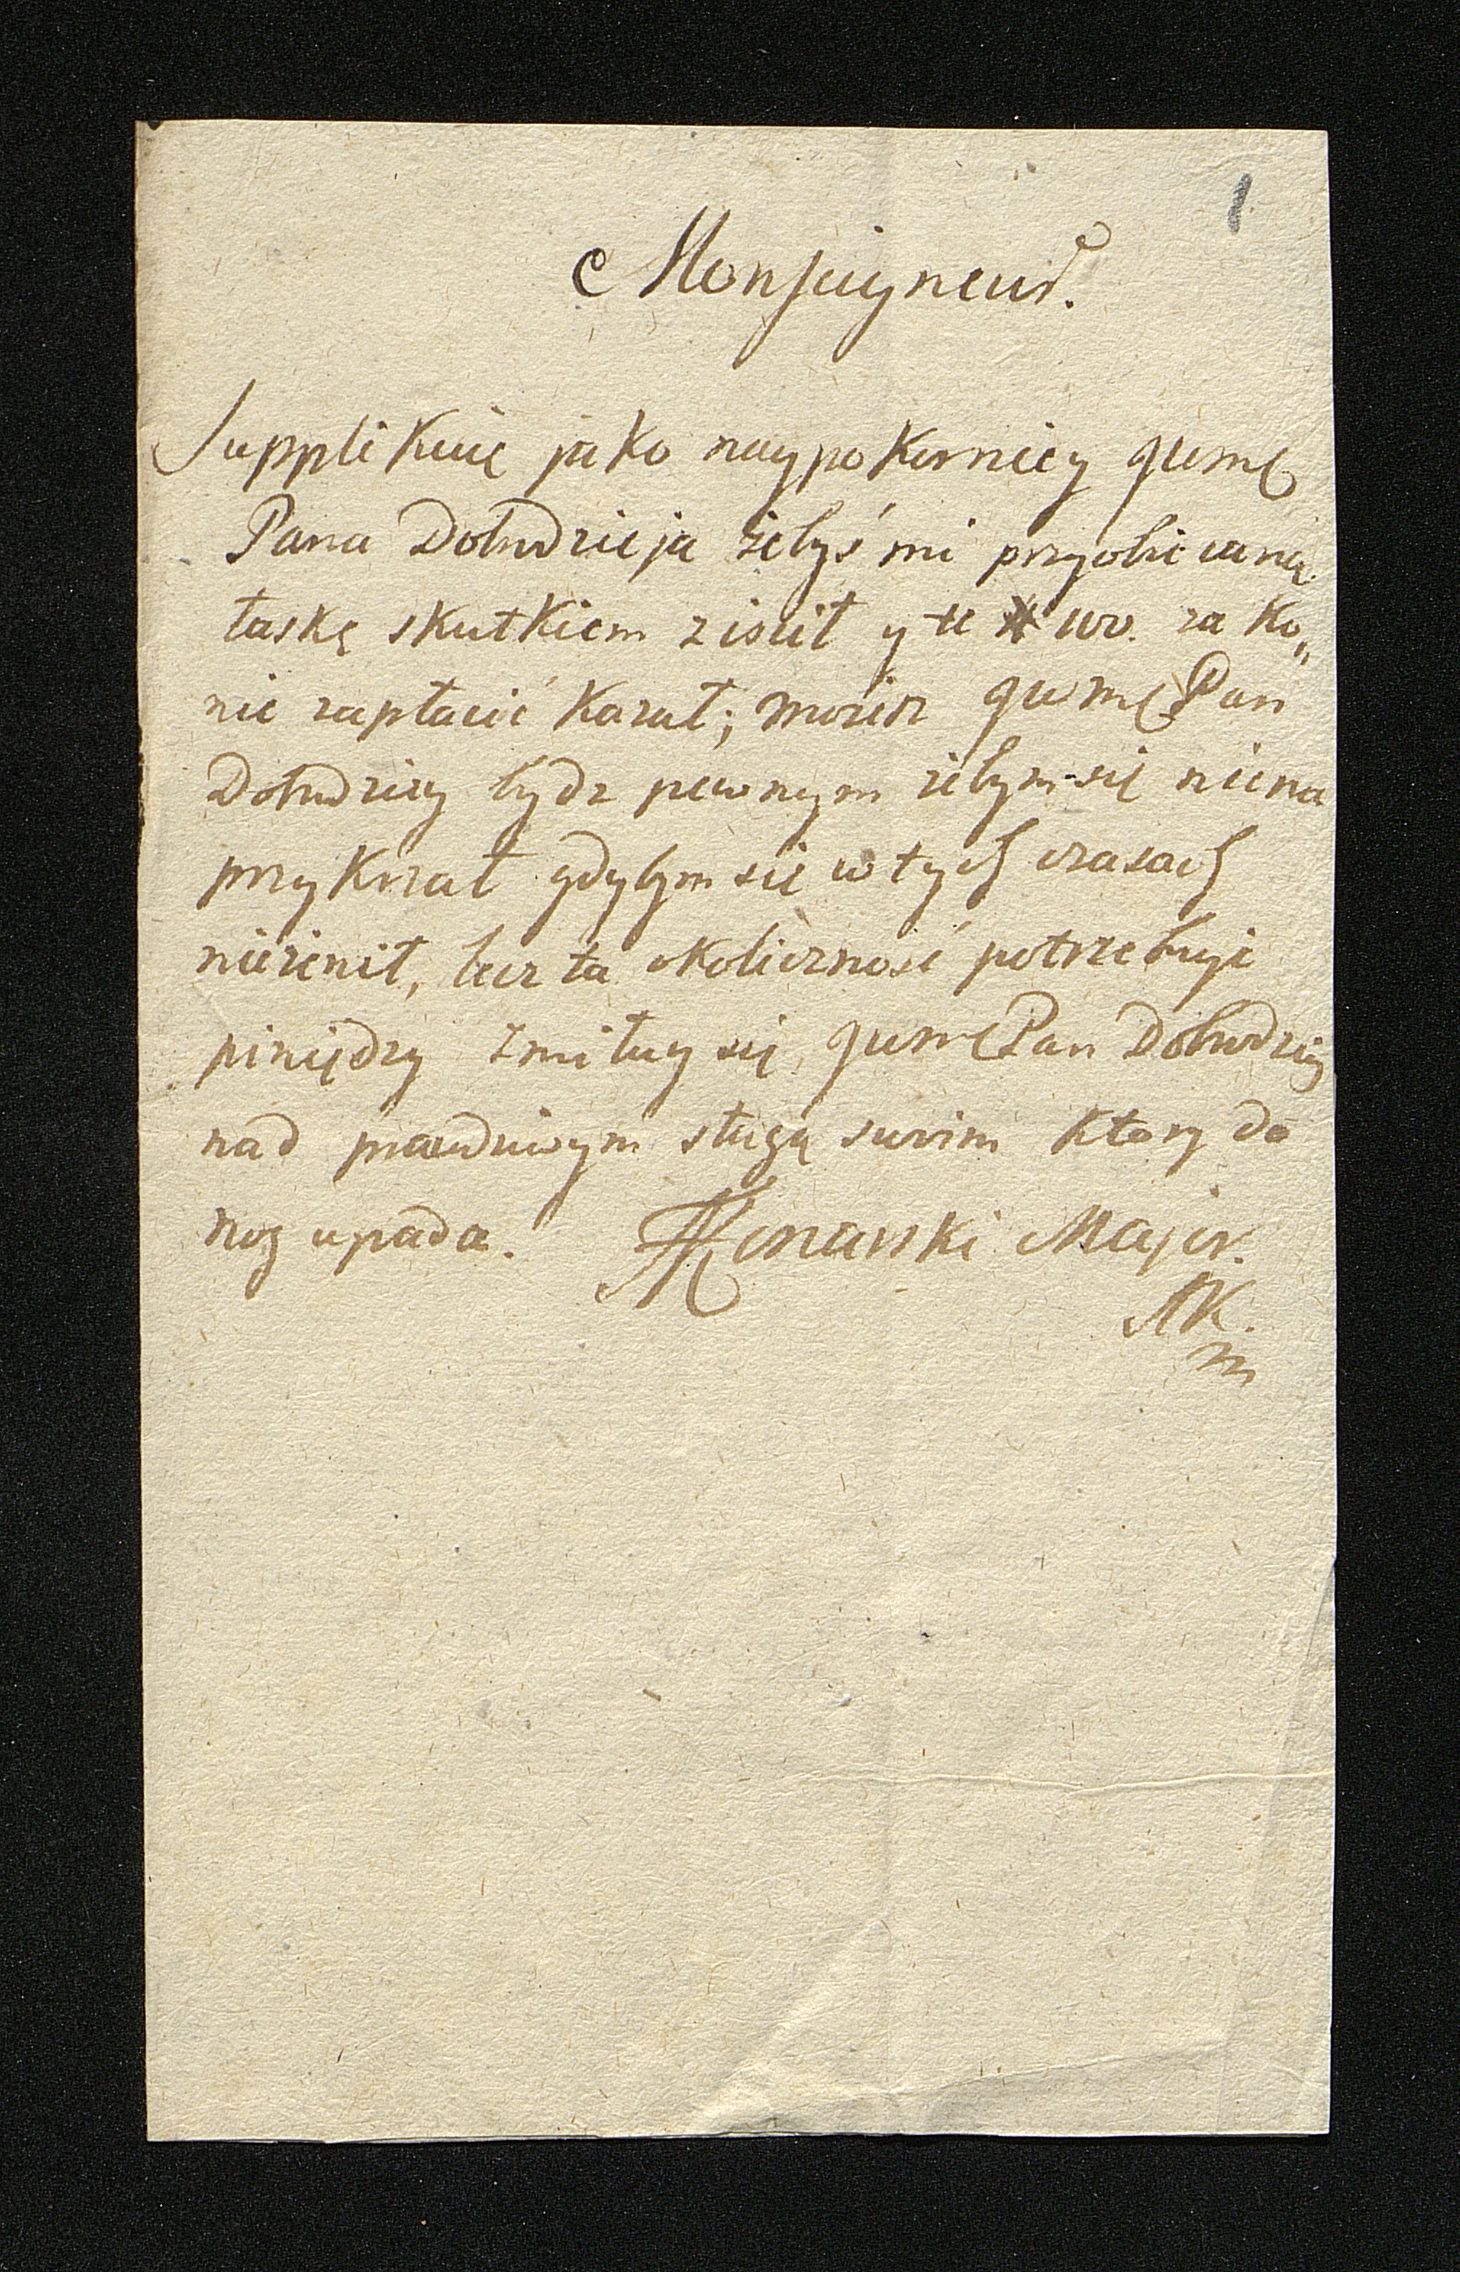 1
Monseigneur.
Supplikuię jako naypokorniey JWmę
Pana Dobrodzieja żebyś mi przyobiecaną
łaskę skutkiem ziścił y te 100. za Ko„
nie zapłacić Kazał; możesz JWmę Pan
Dobrodziey bydz pewnym żebym się niena
przykrzał gdybym się w tych czasach
nieżenił, lecz ta okoliczność potrzebuje
pieniędzy zmiłuy się JWmę Pan Dobrodziey
nad prawdziwym sługą swoim ktory do
nog upada. Konarski Major.
AK.
m